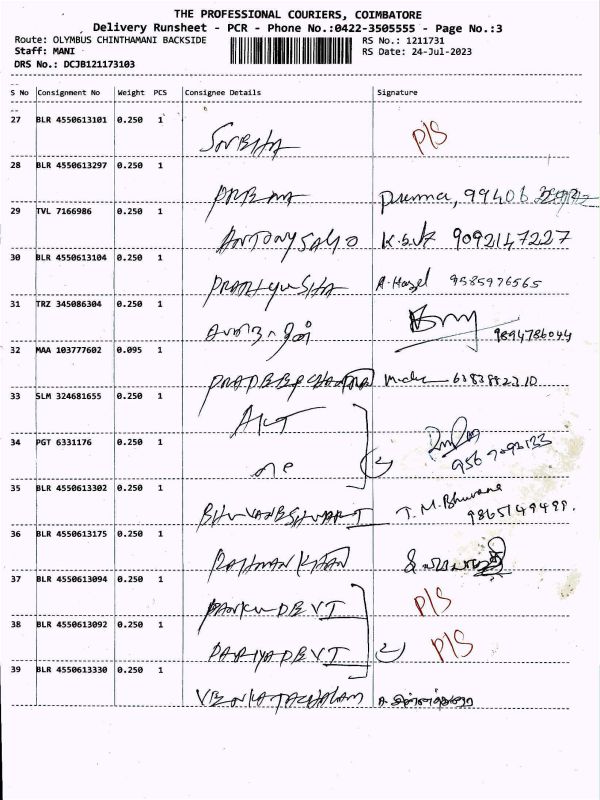 THE PROFESSIONAL COURIERS, COIMBATORE
Delivery Runsheet - PCR - Phone No.:0422-3505555 - Page No.:3
Route: OLYMBUS CHINTHAMANI BACKSIDE RS No.: 1211731
Staff: MANI RS Date: 24-Jul-2023
DRS No.: DCJB121173103
S No Consignment No Weight PCS Consignee Details Signature
27 BLR 4550613101 0.250 1
P/S
28 BLR 4550613297 0.250 1
PREMA Prema, 99406
29 TVL 7166986 0.250 1
ANTONYSAMO 9092147227
30 BLR 4550613104 0.250 1
PRATHYUSHA A. Hazel 9585976565
31 TRZ 345086304 0.250 1
9894786044
32 MAA 103777602 0.095 1
PRADEEP
33 SLM 324681655 0.250 1
34 PGT 6331176 0.250 1
35 BLR 4550613302 0.250 1
BHUVANESHWARI T. M. Bhuvana
9865149499.
36 BLR 4550613175 0.250 1
RAHMAN KHAN
37 BLR 4550613094 0.250 1
DEVI P/S
38 BLR 4550613092 0.250 1
PARIYADEVI 2 P/S
39 BLR 4550613330 0.250 1
VENKATACHALAM